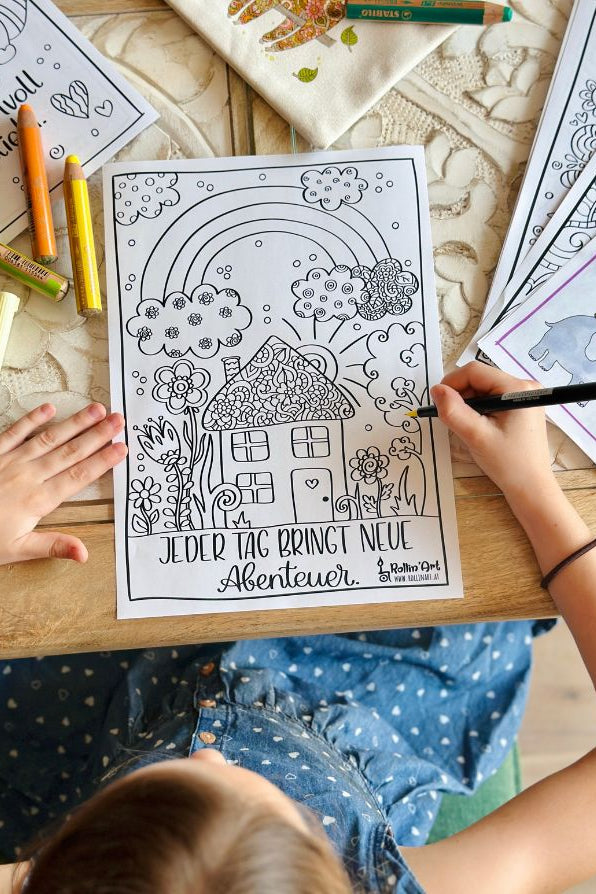 voll
STABILO
JEDER TAG BRINGT NEUE
Abenteuer.
Rollin'Art
WWW.ROLLINART.AT